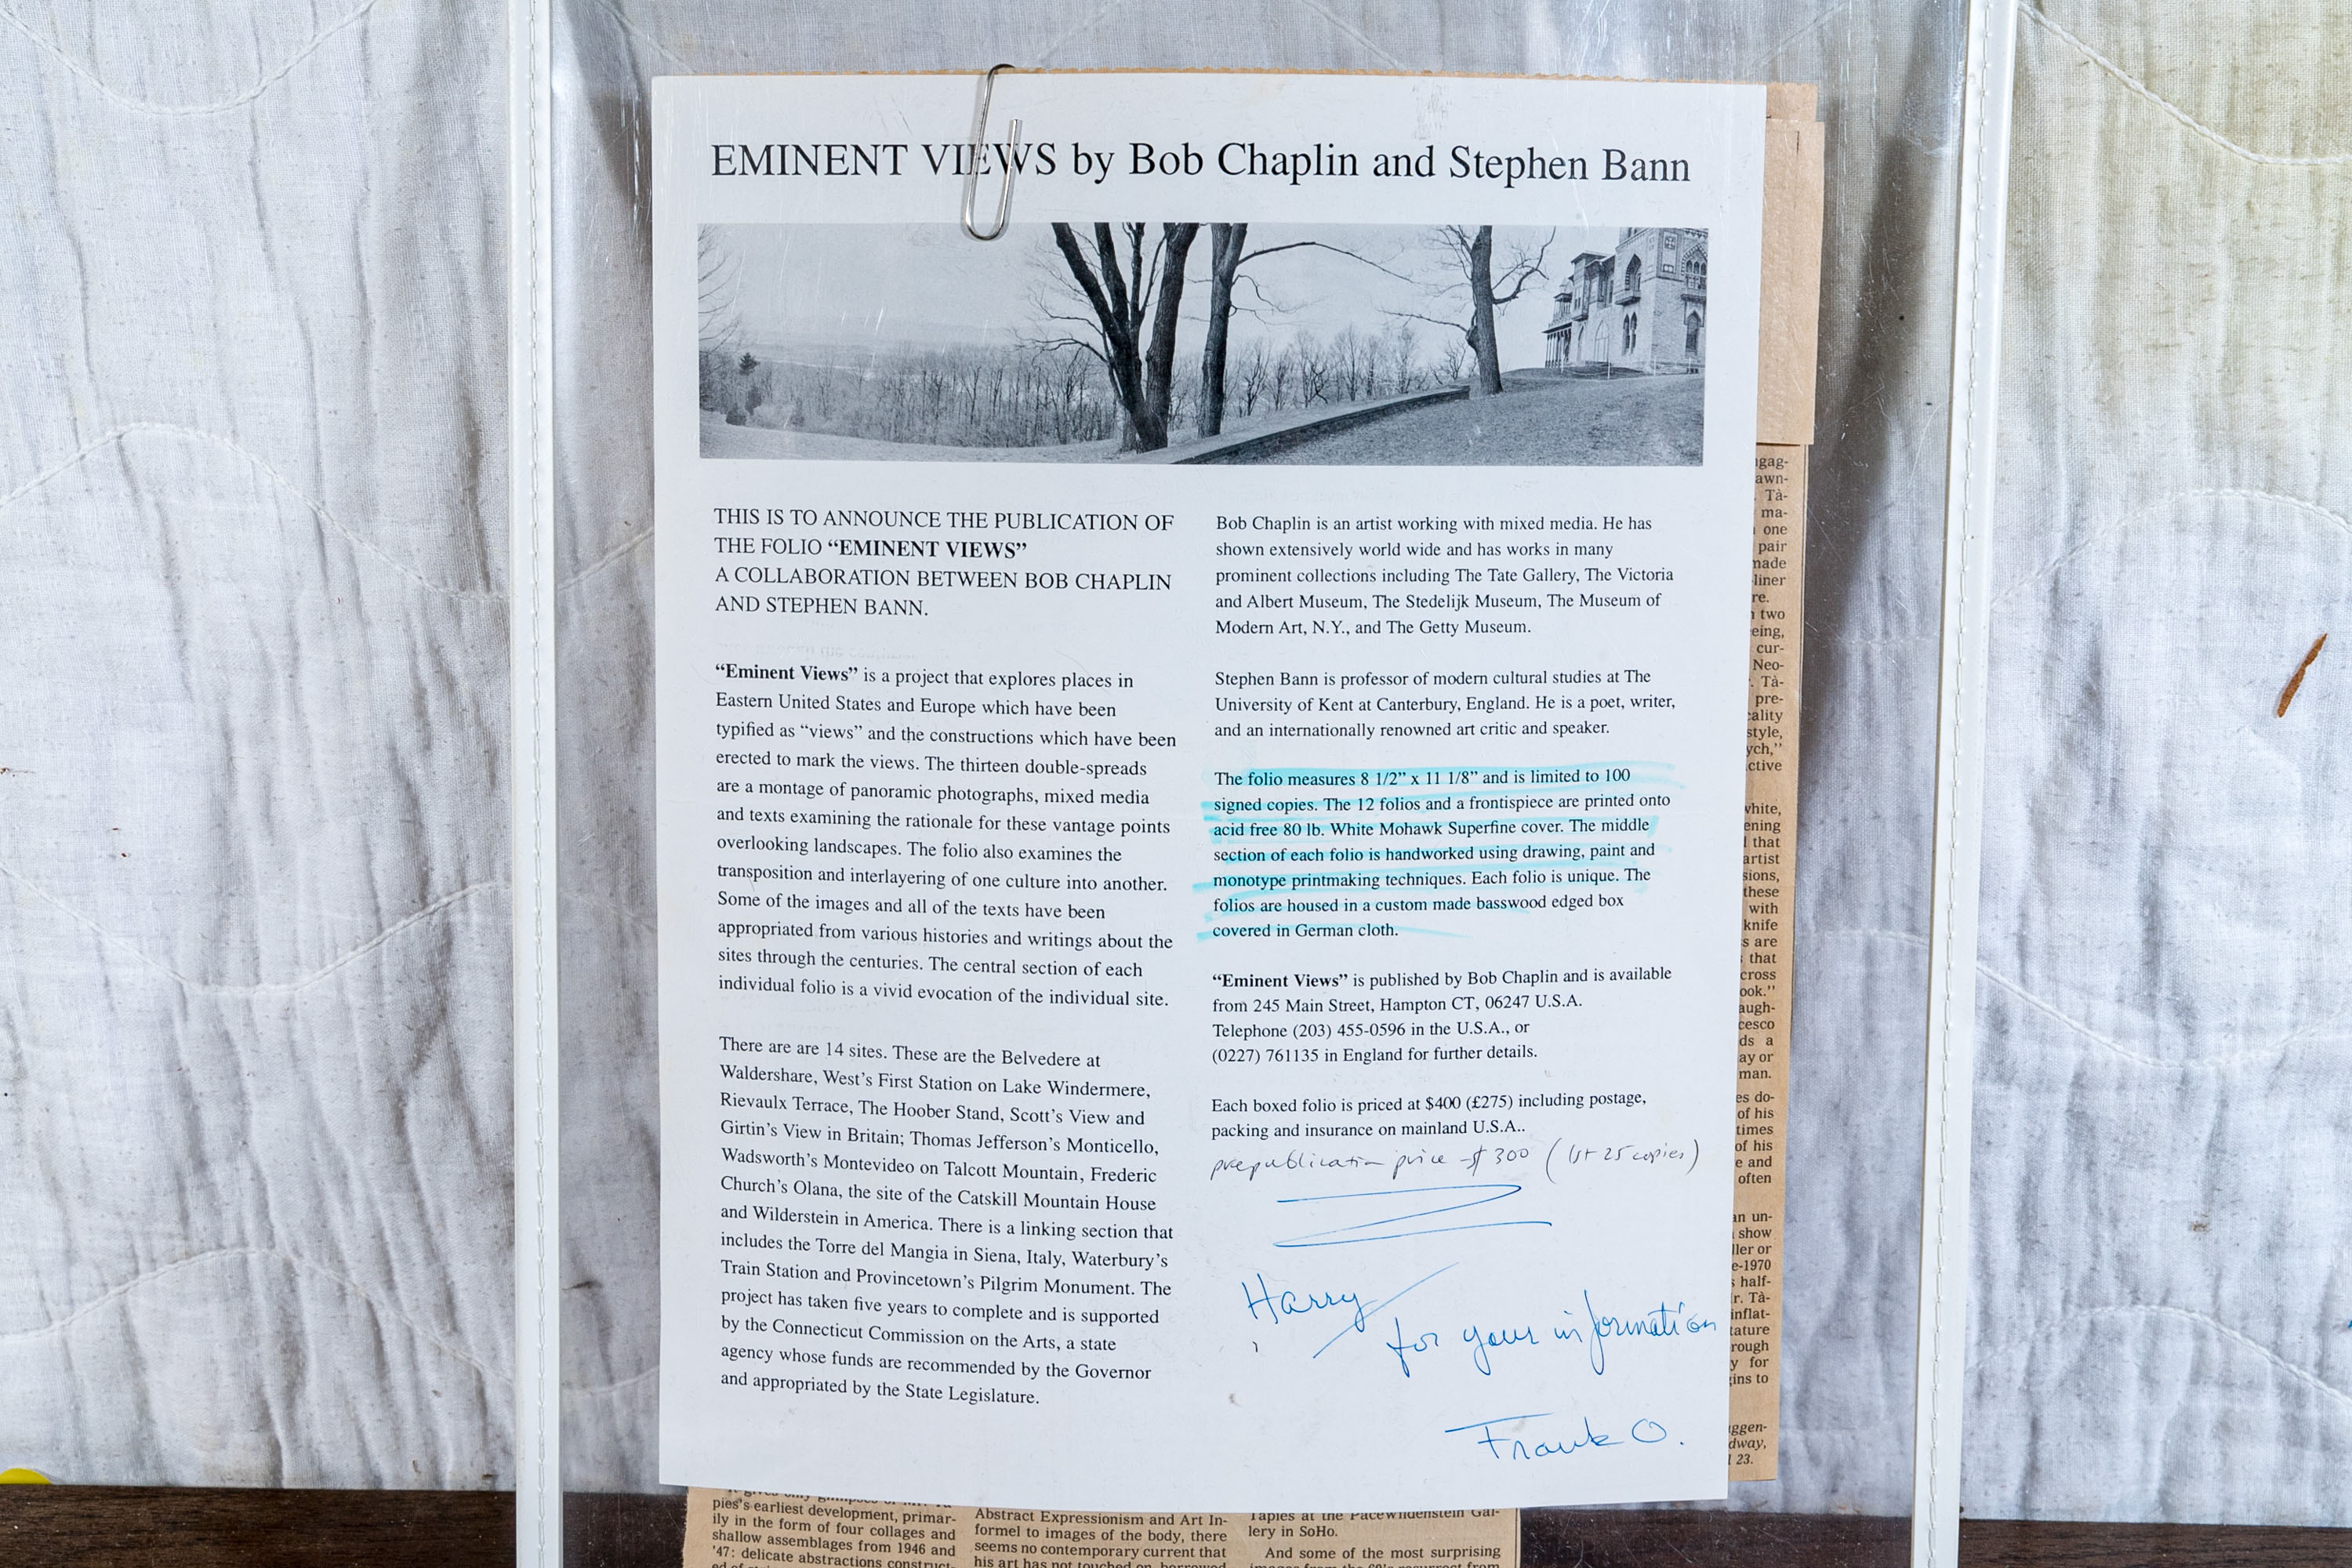 EMINENT VIEWS by Bob Chaplin and Stephen Bann
THIS IS TO ANNOUNCE THE PUBLICATION OF
THE FOLIO “EMINENT VIEWS”
A COLLABORATION BETWEEN BOB CHAPLIN
AND STEPHEN BANN.
“Eminent Views” is a project that explores places in
Eastern United States and Europe which have been
typified as “views” and the constructions which have been
erected to mark the views. The thirteen double-spreads
are a montage of panoramic photographs, mixed media
and texts examining the rationale for these vantage points
overlooking landscapes. The folio also examines the
transposition and interlayering of one culture into another.
Some of the images and all of the texts have been
appropriated from various histories and writings about the
sites through the centuries. The central section of each
individual folio is a vivid evocation of the individual site.
There are are 14 sites. These are the Belvedere at
Waldershare, West’s First Station on Lake Windermere,
Rievaulx Terrace, The Hoober Stand, Scott’s View and
Girtin’s View in Britain; Thomas Jefferson’s Monticello,
Wadsworth’s Montevideo on Talcott Mountain, Frederic
Church’s Olana, the site of the Catskill Mountain House
and Wilderstein in America. There is a linking section that
includes the Torre del Mangia in Siena, Italy, Waterbury’s
Train Station and Provincetown’s Pilgrim Monument. The
project has taken five years to complete and is supported
by the Connecticut Commission on the Arts, a state
agency whose funds are recommended by the Governor
and appropriated by the State Legislature.
Bob Chaplin is an artist working with mixed media. He has
shown extensively world wide and has works in many
prominent collections including The Tate Gallery, The Victoria
and Albert Museum, The Stedelijk Museum, The Museum of
Modern Art, N.Y., and The Getty Museum.
Stephen Bann is professor of modern cultural studies at The
University of Kent at Canterbury, England. He is a poet, writer,
and an internationally renowned art critic and speaker.
The folio measures 8 1/2” x 11 1/8” and is limited to 100
signed copies. The 12 folios and a frontispiece are printed onto
acid free 80 lb. White Mohawk Superfine cover. The middle
section of each folio is handworked using drawing, paint and
monotype printmaking techniques. Each folio is unique. The
folios are housed in a custom made basswood edged box
covered in German cloth.
“Eminent Views” is published by Bob Chaplin and is available
from 245 Main Street, Hampton CT, 06247 U.S.A.
Telephone (203) 455-0596 in the U.S.A., or
(0227) 761135 in England for further details.
Each boxed folio is priced at $400 (£275) including postage,
packing and insurance on mainland U.S.A..
prepublication price $300 (1st 25 copies)
Harry
for your information
Frank O.
ngag-
awn-
Tà-
ma-
one
pair
nade
liner
re.
two
eing,
cur-
Neo-
Tà-
pre-
cality
style,
ych,”
ctive
white,
ening
that
artist
sions,
these
with
knife
s are
that
cross
ook.”
augh-
cesco
ds a
ay or
man.
es do-
of his
times
of his
e and
often
an un-
show
ller or
e-1970
half-
r. Tà-
inflat-
tature
rough
y for
gins to
ggen-
dway,
23.
pies’s earliest development, primar-
ily in the form of four collages and
shallow assemblages from 1946 and
’47: delicate abstractions construct-
Abstract Expressionism and Art In-
formel to images of the body, there
seems no contemporary current that
his art has not touched on, borrowed
Tàpies at the PaceWildenstein Gal-
lery in SoHo.
And some of the most surprising